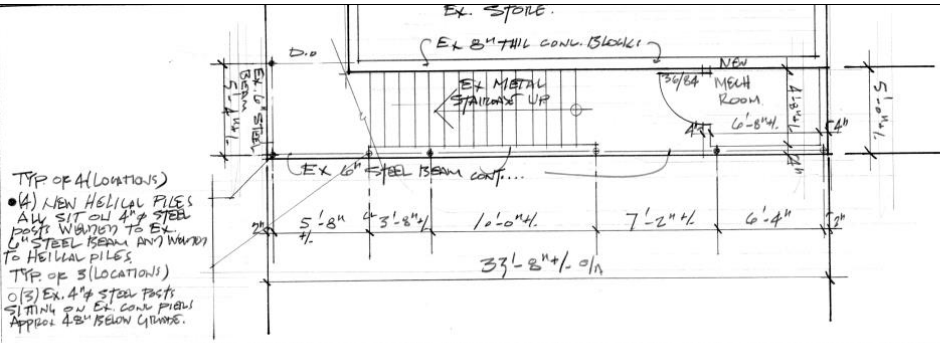 EX. STORE.
EX 8" THK CONC. BLOCKS
D.o
NEW
MECH
ROOM
36/84
EX METAL
STAIRCASE UP
5'-4"+/-
EX. 6" STEEL
BEAM
4'-8"+/-
5'-0"+/-
4"
6'-8"+/-
4"
4"
EX 6" STEEL BEAM CONT....
TYP. OF 4 (LOCATIONS)
(4) NEW HELICAL PILES
ALL SIT ON 4"φ STEEL
POSTS WELDED TO EX.
6" STEEL BEAM AND WELDED
TO HELICAL PILES
TYP. OF 3 (LOCATIONS)
O(3) EX. 4"φ STEEL POSTS
SITTING ON EX. CONC PIERS
APPROX 48" BELOW GRADE.
2"
5'-8"
+/-
3'-8"+/-
10'-0"+/-
7'-2"+/-
6'-4"
2"
33'-8"+/- O/A